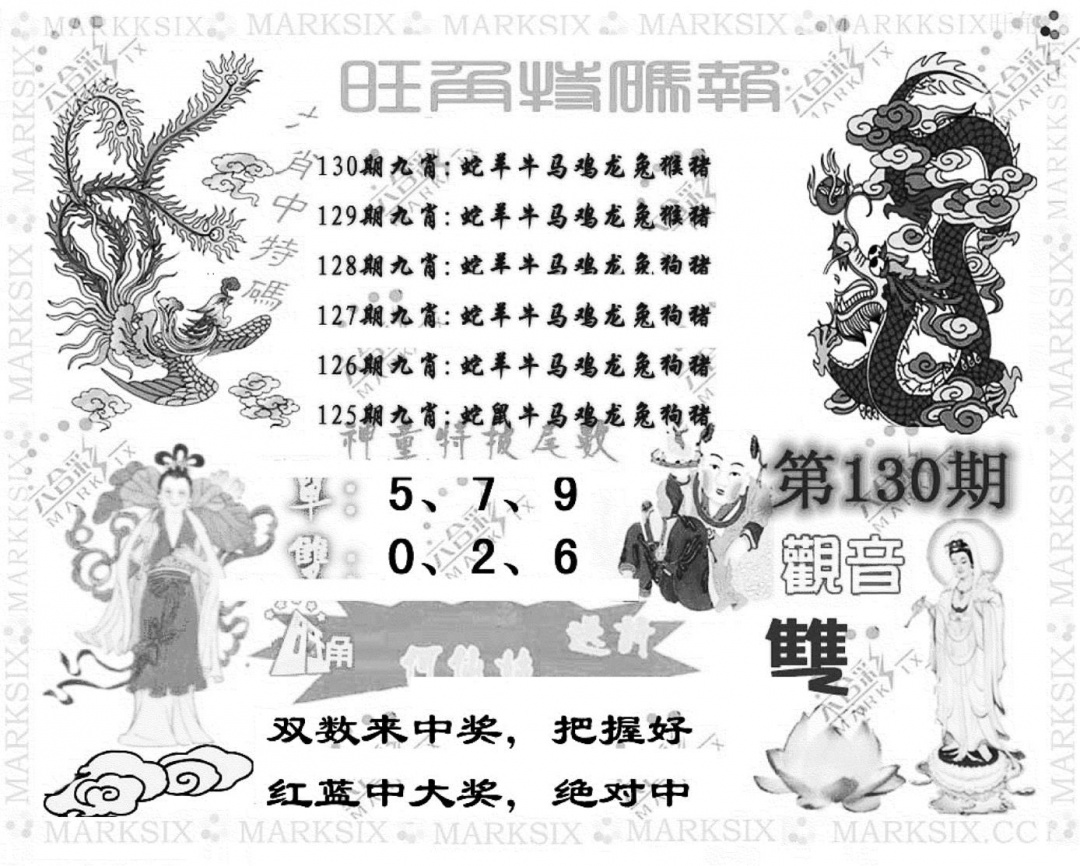 MARKSIX MARKSIX MARKSIX MARKSIX MARKKSIX
旺角特碼報
九肖中特碼
130期九肖: 蛇羊牛马鸡龙兔猴猪
129期九肖: 蛇羊牛马鸡龙兔猴猪
128期九肖: 蛇羊牛马鸡龙兔狗猪
127期九肖: 蛇羊牛马鸡龙兔狗猪
126期九肖: 蛇羊牛马鸡龙兔狗猪
125期九肖: 蛇鼠牛马鸡龙兔狗猪
神童特报尾数
單: 5、7、9
雙: 0、2、6
第130期
觀音
雙
双数来中奖，把握好
红蓝中大奖，绝对中
MARKSIX MARKSIX MARKSIX MARKSIX MARKSIX.CC